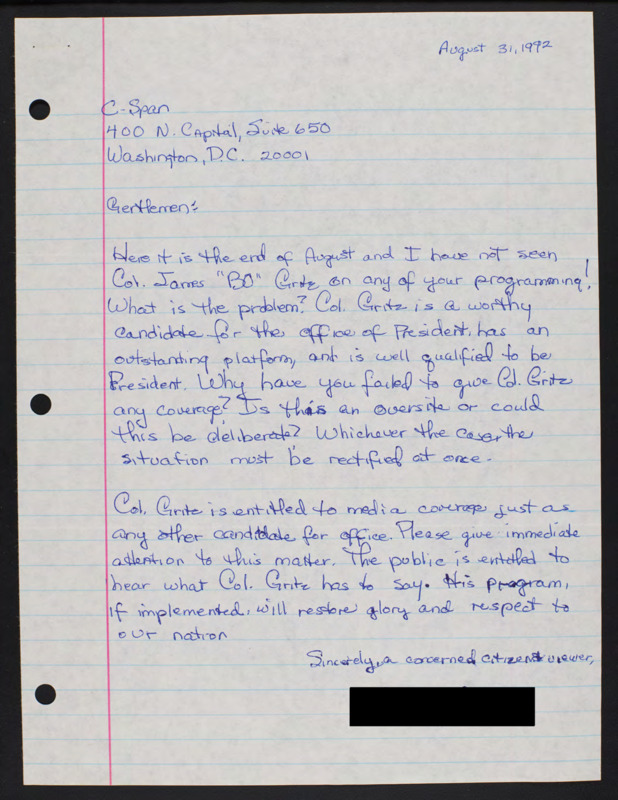 August 31, 1992
C-Span
400 N. Capital, Suite 650
Washington, D.C. 20001
Gentlemen:
Here it is the end of August and I have not seen
Col. James "BO" Gritz on any of your programming!
What is the problem? Col. Gritz is a worthy
candidate for the office of President, has an
outstanding platform, and is well qualified to be
President. Why have you failed to give Col. Gritz
any coverage? Is this an oversite or could
this be deliberate? Whichever the case, the
situation must be rectified at once.
Col. Gritz is entitled to media coverage just as
any other candidate for office. Please give immediate
attention to this matter. The public is entitled to
hear what Col. Gritz has to say. His program,
if implemented, will restore glory and respect to
our nation
Sincerely, a concerned citizen & viewer,